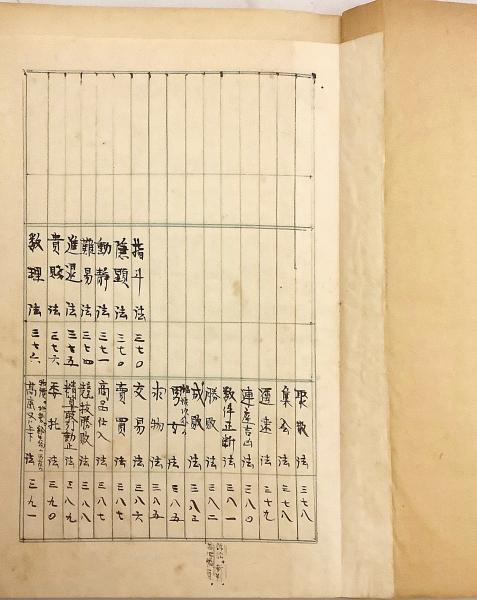 指斗法 三七〇
隱顕法 三七〇
動静法 三七一
難易法 三七四
進退法 三七五
貴賤法 三七六
数理法 三七六
聚散法 三七八
集会法 三七八
遅速法 三七九
連産吉凶法 三八〇
数件正断法 三八一
勝敗法 三八二
成敗法 三八三
法 三八五
求物法 三八五
交易法 三八六
賣買法 三八七
商品仕入法 三八七
競技勝敗法 三八八
精算取引動止法 三八九
委托法 三九〇
高底又ハ上下法 三九一